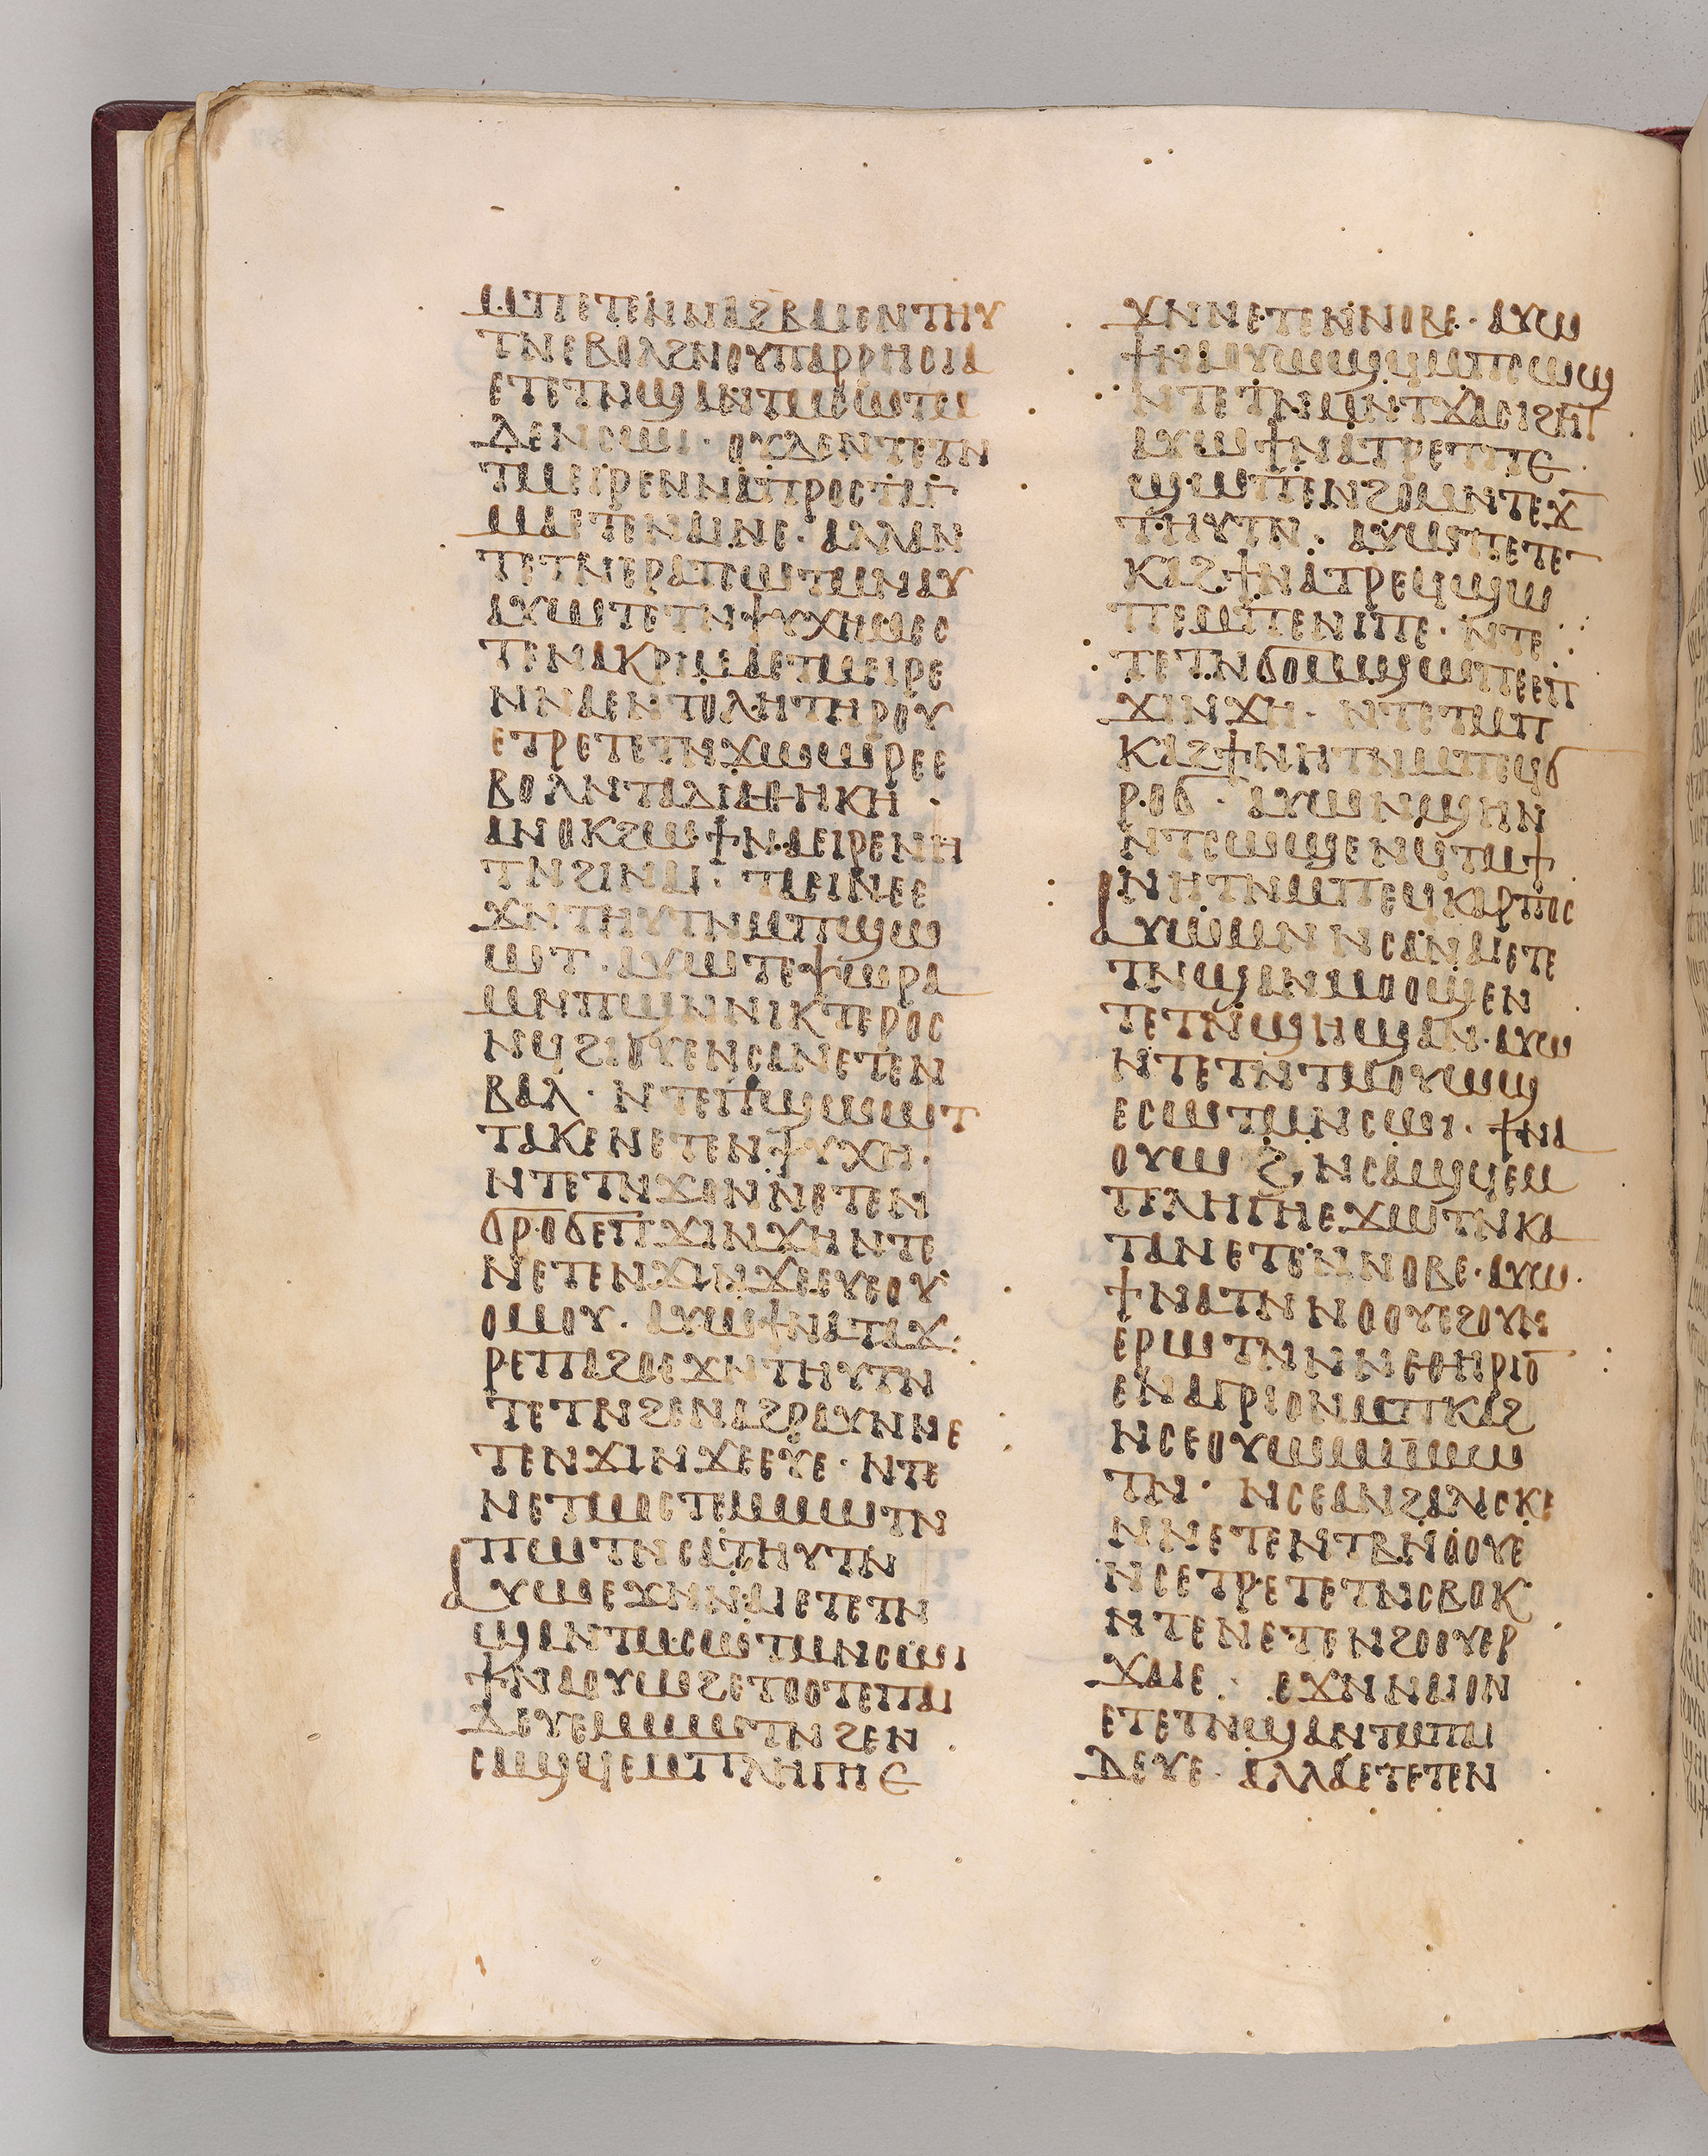 ⲙⲡⲉⲧⲉⲛⲛⲁϩⲃⲁⲓⲉⲛⲧⲏⲩ
ⲧⲛⲉⲃⲟⲗϩⲛⲟⲩⲡⲁⲣⲣⲏⲥⲓⲁ
ⲉⲧⲉⲧⲛϣⲁⲛⲧⲙⲥⲱⲧⲙ
ⲇⲉⲛⲥⲱⲓ· ⲟⲩⲇⲉⲛⲧⲉⲧⲛ
ⲧⲙⲉⲓⲣⲉⲛⲛⲁⲡⲣⲟⲥⲧⲁⲅ
ⲙⲁⲉⲧⲉⲛⲁⲓⲛⲉ· ⲁⲗⲗⲁⲛ
ⲧⲉⲧⲛⲉⲣⲁⲡⲱⲧⲙⲛⲁⲩ
ⲁⲩⲱⲧⲉⲧⲛⲯⲩⲭⲏⲙⲉⲥ
ⲧⲉⲛⲁⲕⲣⲓⲙⲁⲉⲧⲙⲉⲓⲣⲉ
ⲛⲛⲁⲉⲛⲧⲟⲗⲏⲧⲏⲣⲟⲩ
ⲉⲧⲣⲉⲧⲉⲧⲛϫⲱⲱⲣⲉⲉ
ⲃⲟⲗⲛⲧⲁⲇⲓⲁⲑⲏⲕⲏ·
ⲁⲛⲟⲕϩⲱϯⲛⲁⲉⲓⲣⲉⲛⲏ
ⲧⲛϩⲓⲛⲁⲓ· ⲧⲁⲉⲓⲛⲉⲉ
ϫⲛⲧⲏⲩⲧⲛⲙⲡϣⲱ
ⲱⲧ· ⲁⲩⲱⲧⲉⲯⲱⲣⲁ
ⲙⲛⲡϣⲛⲛⲓⲕⲧⲉⲣⲟⲥ
ⲛϥϩⲓⲟⲩⲉⲛⲥⲁⲛⲉⲧⲉⲛ
ⲃⲁⲗ· ⲛⲧⲉⲡϣⲱⲱⲧ
ⲧⲁⲕⲉⲛⲉⲧⲉⲛⲯⲩⲭⲏ·
ⲛⲧⲉⲧⲛϫⲟⲛⲛⲉⲧⲉⲛ
ϭⲣⲟϭⲉⲡϫⲓⲛϫⲏⲛⲧⲉ
ⲛⲉⲧⲉⲛϫⲓⲛϫⲉⲉⲩⲉⲟⲩ
ⲟⲙⲟⲩ· ⲁⲩⲱϯⲛⲁⲧⲁϫ
ⲣⲉⲡⲁϩⲟⲉϫⲛⲧⲏⲩⲧⲛ
ⲧⲉⲧⲛϩⲉⲛⲁϩⲣⲁⲩⲛⲛⲉ
ⲧⲉⲛϫⲓⲛϫⲉⲉⲩⲉ· ⲛⲧⲉ
ⲛⲉⲧⲙⲟⲥⲧⲉⲙⲙⲱⲧⲛ
ⲡⲱⲧⲛⲥⲁⲧⲏⲩⲧⲛ
ⲁⲩⲱⲉϫⲛⲛⲁⲓⲉⲧⲉⲧⲛ
ϣⲁⲛⲧⲙⲥⲱⲧⲙⲛⲥⲱⲓ
ϯⲛⲁⲟⲩⲱϩⲉⲧⲟⲟⲧⲉⲡⲁⲓ
ⲇⲉⲩⲉⲙⲙⲱⲧⲛϩⲉⲛ
ⲥⲁϣϥⲉⲙⲡⲗⲏⲅⲏⲉ
ϫⲛⲛⲉⲧⲉⲛⲛⲟⲃⲉ· ⲁⲩⲱ
ϯⲛⲁⲟⲩⲱϣϥⲙⲡⲥⲱϣ
ⲛⲧⲉⲧⲛⲙⲛⲧϫⲁⲥⲓϩⲏⲧ
ⲁⲩⲱϯⲛⲁⲧⲣⲉⲧⲡⲉ
ϣⲱⲡⲉⲛϩⲟⲙⲛⲧⲉϫ
ⲧⲏⲩⲧⲛ· ⲁⲩⲱⲡⲉⲧⲉⲧ
ⲕⲁϩϯⲛⲁⲧⲣⲉϥϣⲱ
ⲡⲉⲙⲡⲉⲛⲓⲡⲉ· ⲛⲧⲉ
ⲧⲉⲧⲛϭⲟⲙϣⲱⲡⲉⲉⲡ
ϫⲓⲛϫⲏ· ⲛⲧⲉⲧⲙⲡ
ⲕⲁϩϯⲛⲏⲧⲛⲙⲡⲉϥϭ
ⲣⲟϭ· ⲁⲩⲱⲛϣⲏⲛ
ⲛⲧⲥⲱϣⲉⲛϥⲧⲙϯ
ⲛⲏⲧⲛⲙⲡⲉϥⲕⲁⲣⲡⲟⲥ
ⲁⲩⲱⲙⲛⲛⲥⲁⲛⲁⲓⲉⲧⲉ
ⲧⲛϣⲁⲛⲙⲟⲟϣⲉⲛ
ⲧⲉⲧⲛϣⲏϣⲁⲛ· ⲁⲩⲱ
ⲛⲧⲉⲧⲛⲧⲙⲟⲩⲱϣ
ⲉⲥⲱⲧⲙⲛⲥⲱⲓ· ϯⲛⲁ
ⲟⲩⲱϩⲛⲥⲁϣϥⲉⲙ
ⲡⲗⲏⲅⲏⲉϫⲱⲧⲛⲕⲁ
ⲧⲁⲛⲉⲧⲉⲛⲛⲟⲃⲉ· ⲁⲩⲱ
ϯⲛⲁⲧⲛⲛⲟⲟⲩⲉϩⲟⲩⲛ
ⲉⲣⲱⲧⲛⲛⲛⲉⲑⲏⲣⲓⲟ
ⲉⲛⲁⲅⲣⲓⲟⲛⲙⲡⲕⲁϩ
ⲛⲥⲉⲟⲩⲱⲙⲙⲙⲱ
ⲧⲛ· ⲛⲥⲉⲁⲛϩⲁⲗⲓⲥⲕⲉ
ⲛⲛⲉⲧⲉⲛⲧⲃⲛⲟⲟⲩⲉ
ⲛⲥⲉⲧⲣⲉⲧⲉⲧⲛⲥⲃⲟⲕ
ⲛⲧⲉⲛⲉⲧⲉⲛϩⲟⲟⲩⲉⲣ
ϫⲁⲓⲉ· ⲉϫⲛⲛⲁⲓⲟⲛ
ⲉⲧⲉⲧⲛϣⲁⲛⲧⲙⲡⲁⲓ
ⲇⲉⲩⲉ· ⲁⲗⲗⲁⲉⲧⲉⲧⲉⲛ